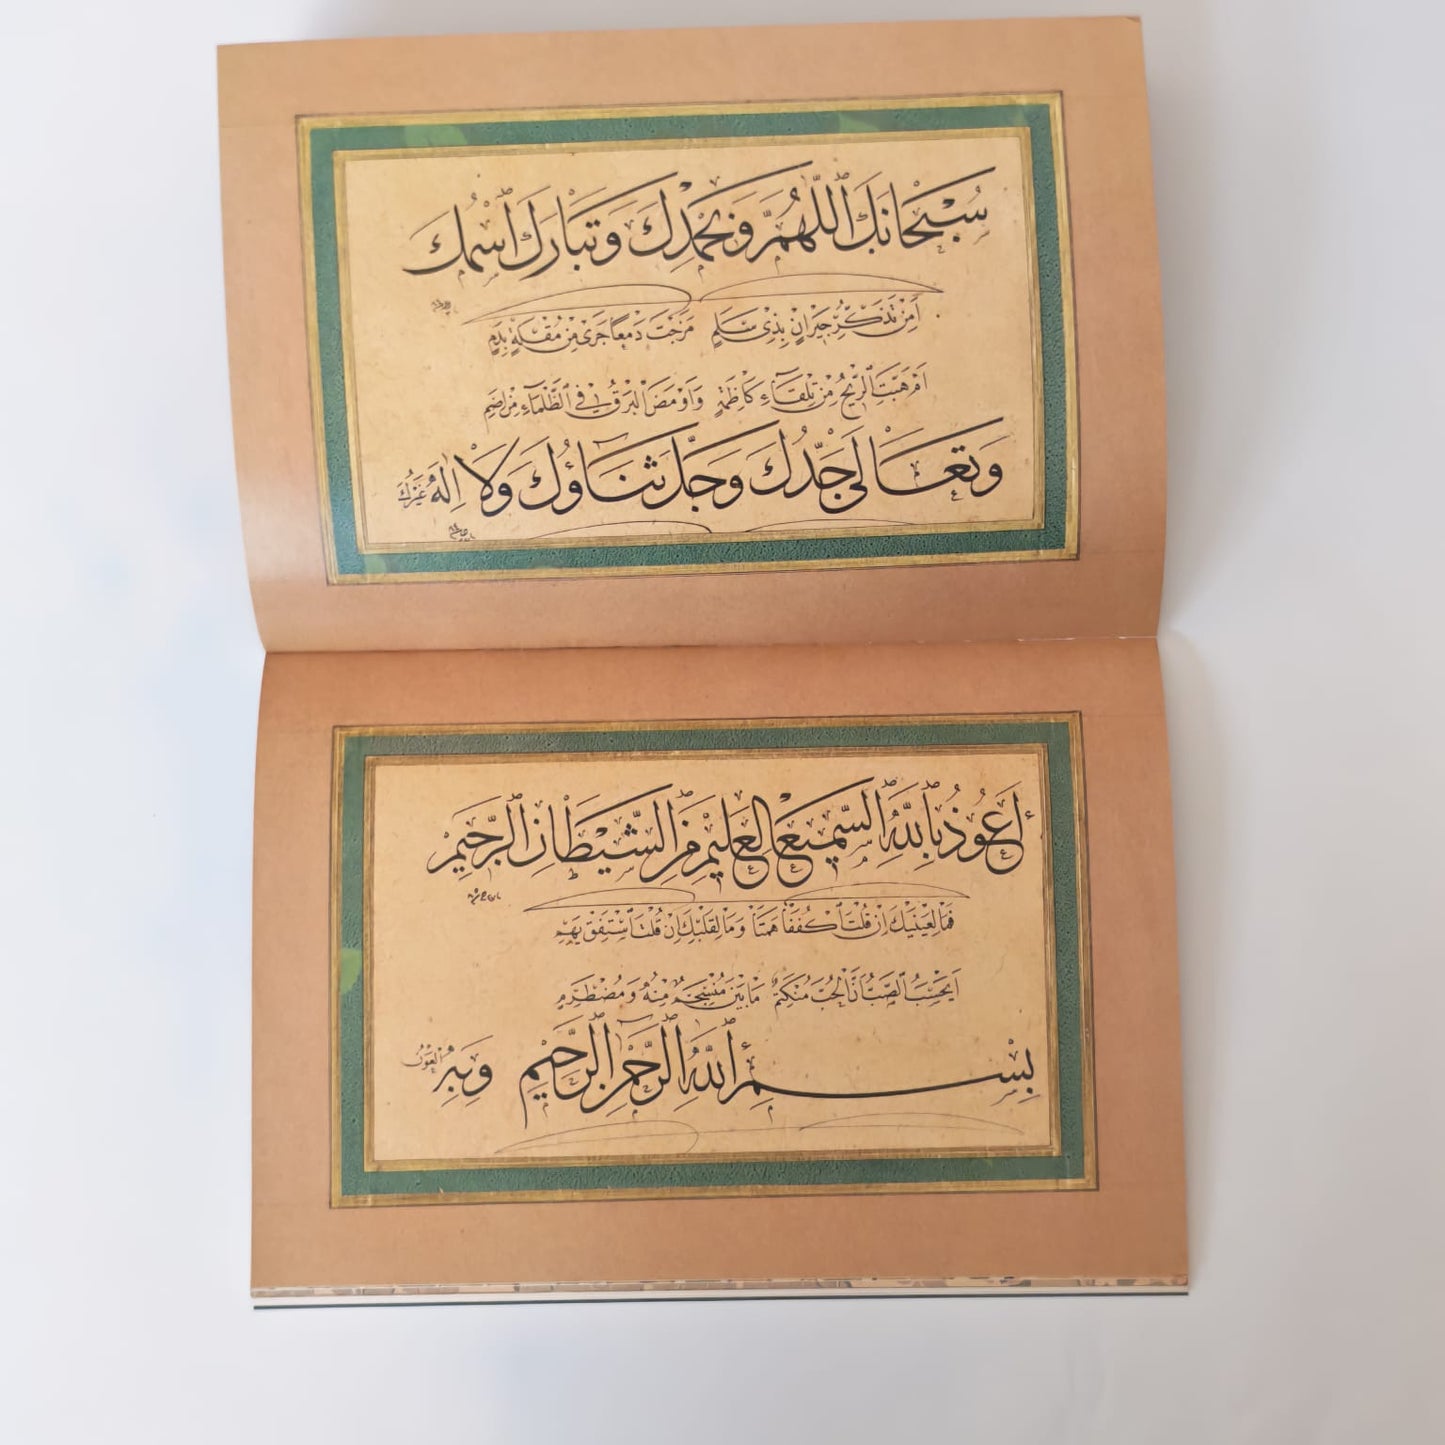 سُبْحَانَكَ ٱللّٰهُمَّ وَبِحَمْدِكَ وَتَبَارَكَ ٱسْمُكَ
اَمِنْ تَذَكُّرِ جِيرَانٍ بِذِي سَلَمٍ مَزَجْتَ دَمْعًا جَرٰى مِنْ مُقْلَةٍ بِدَمٍ
اَمْ هَبَّتِ ٱلرِّيحُ مِنْ تِلْقَاءِ كَاظِمَةٍ وَاَوْمَضَ البَرْقُ فِي ٱلظَّلْمَاءِ مِنْ اِضَمِ
وَتَعَالٰى جَدُّكَ وَجَلَّ ثَنَاؤُكَ وَلَا اِلٰهَ غَيْرُكَ
أَعُوذُ بِٱللّٰهِ ٱلسَّمِيعِ العَلِيمِ مِنَ ٱلشَّيْطَانِ ٱلرَّجِيمِ
فَمَا لِعَيْنَيْكَ اِنْ قُلْتَ ٱكْفُفَا هَمَتَا وَمَا لِقَلْبِكَ اِنْ قُلْتَ ٱسْتَفِقْ يَهِمِ
اَيَحْسَبُ ٱلصَّبُّ اَنَّ ٱلحُبَّ مُنْكَتِمٌ مَا بَيْنَ مُنْسَجِمٍ مِنْهُ وَمُضْطَرِمِ
بِسْمِ ٱللّٰهِ ٱلرَّحْمٰنِ ٱلرَّحِيمِ وَبِهِ العَوْنُ